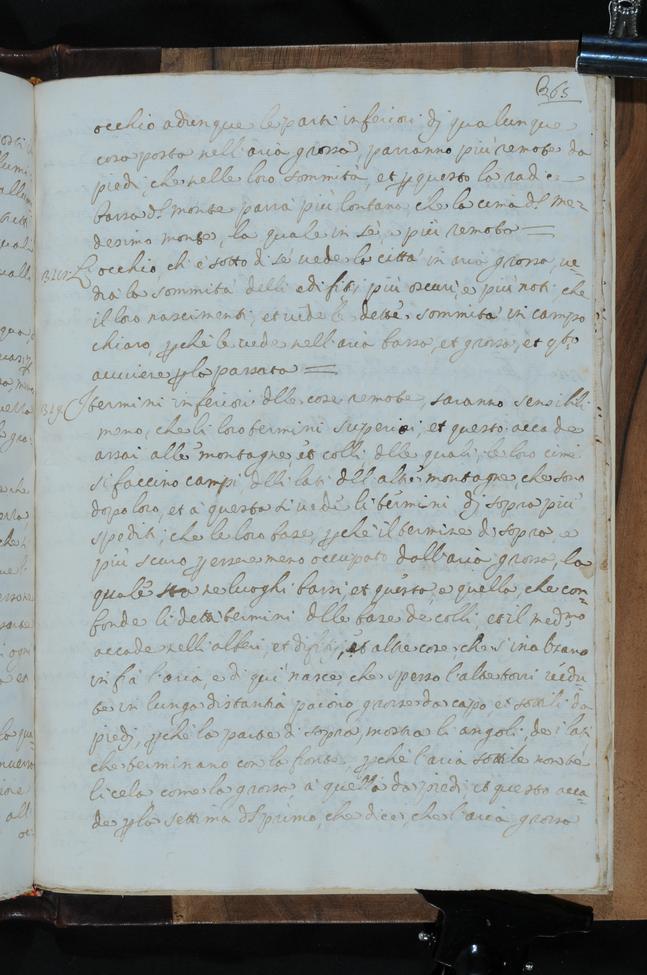 365
occhio adunque le parti inferiori di qualunque
cosa posta nell'aria grossa, parranno più remote da
piedi, che nelle loro sommità, et p questo la radice
bassa dl monte parrà più lontana, che la cima dl me-
desimo monte, la quale in se, è più remota =
L'occhio, ch'è sotto di sé vede la città in aria grossa, ve-
drà la sommità delli edifitij più oscuri, e più noti, che
il loro nascimenti, et vede le dette sommità in campo
chiaro, pchè le vede nell'aria bassa, et grossa, et qto
avviene p la passata =
349 I termini inferiori dlle cose remote, saranno sensibili
meno, che li loro termini superiori, et questo accade
assai alle montagne, et colli dlle quali, le loro cime
si faccino campi dlli lati dll'altre montagne che sono
dopo loro, et a questa si vede li termini di sopra più
spediti, che le loro base, pchè il termine di sopra, e
più scuro p essere meno occupato dall'aria grossa, la
quale sta ne luoghi bassi, et questa, e quella, che con-
fonde li detti termini dlle base de colli, et il medmo
accade nelli alberi, et difitij, et altre cose che s'inalzano
infra l'aria, e di qui nasce, che spesso l'alte torri vedu-
te in lunga distantia paiono grosse da capo, et sottili da
piedi, pchè la parte di sopra, mostra li angoli, de i lati
che terminano con la fronte, pchè l'aria sottile non te
li cela come la grossa a quella da piedi, et questo acca-
de p la settima dl primo, che dice, che l'aria grossa